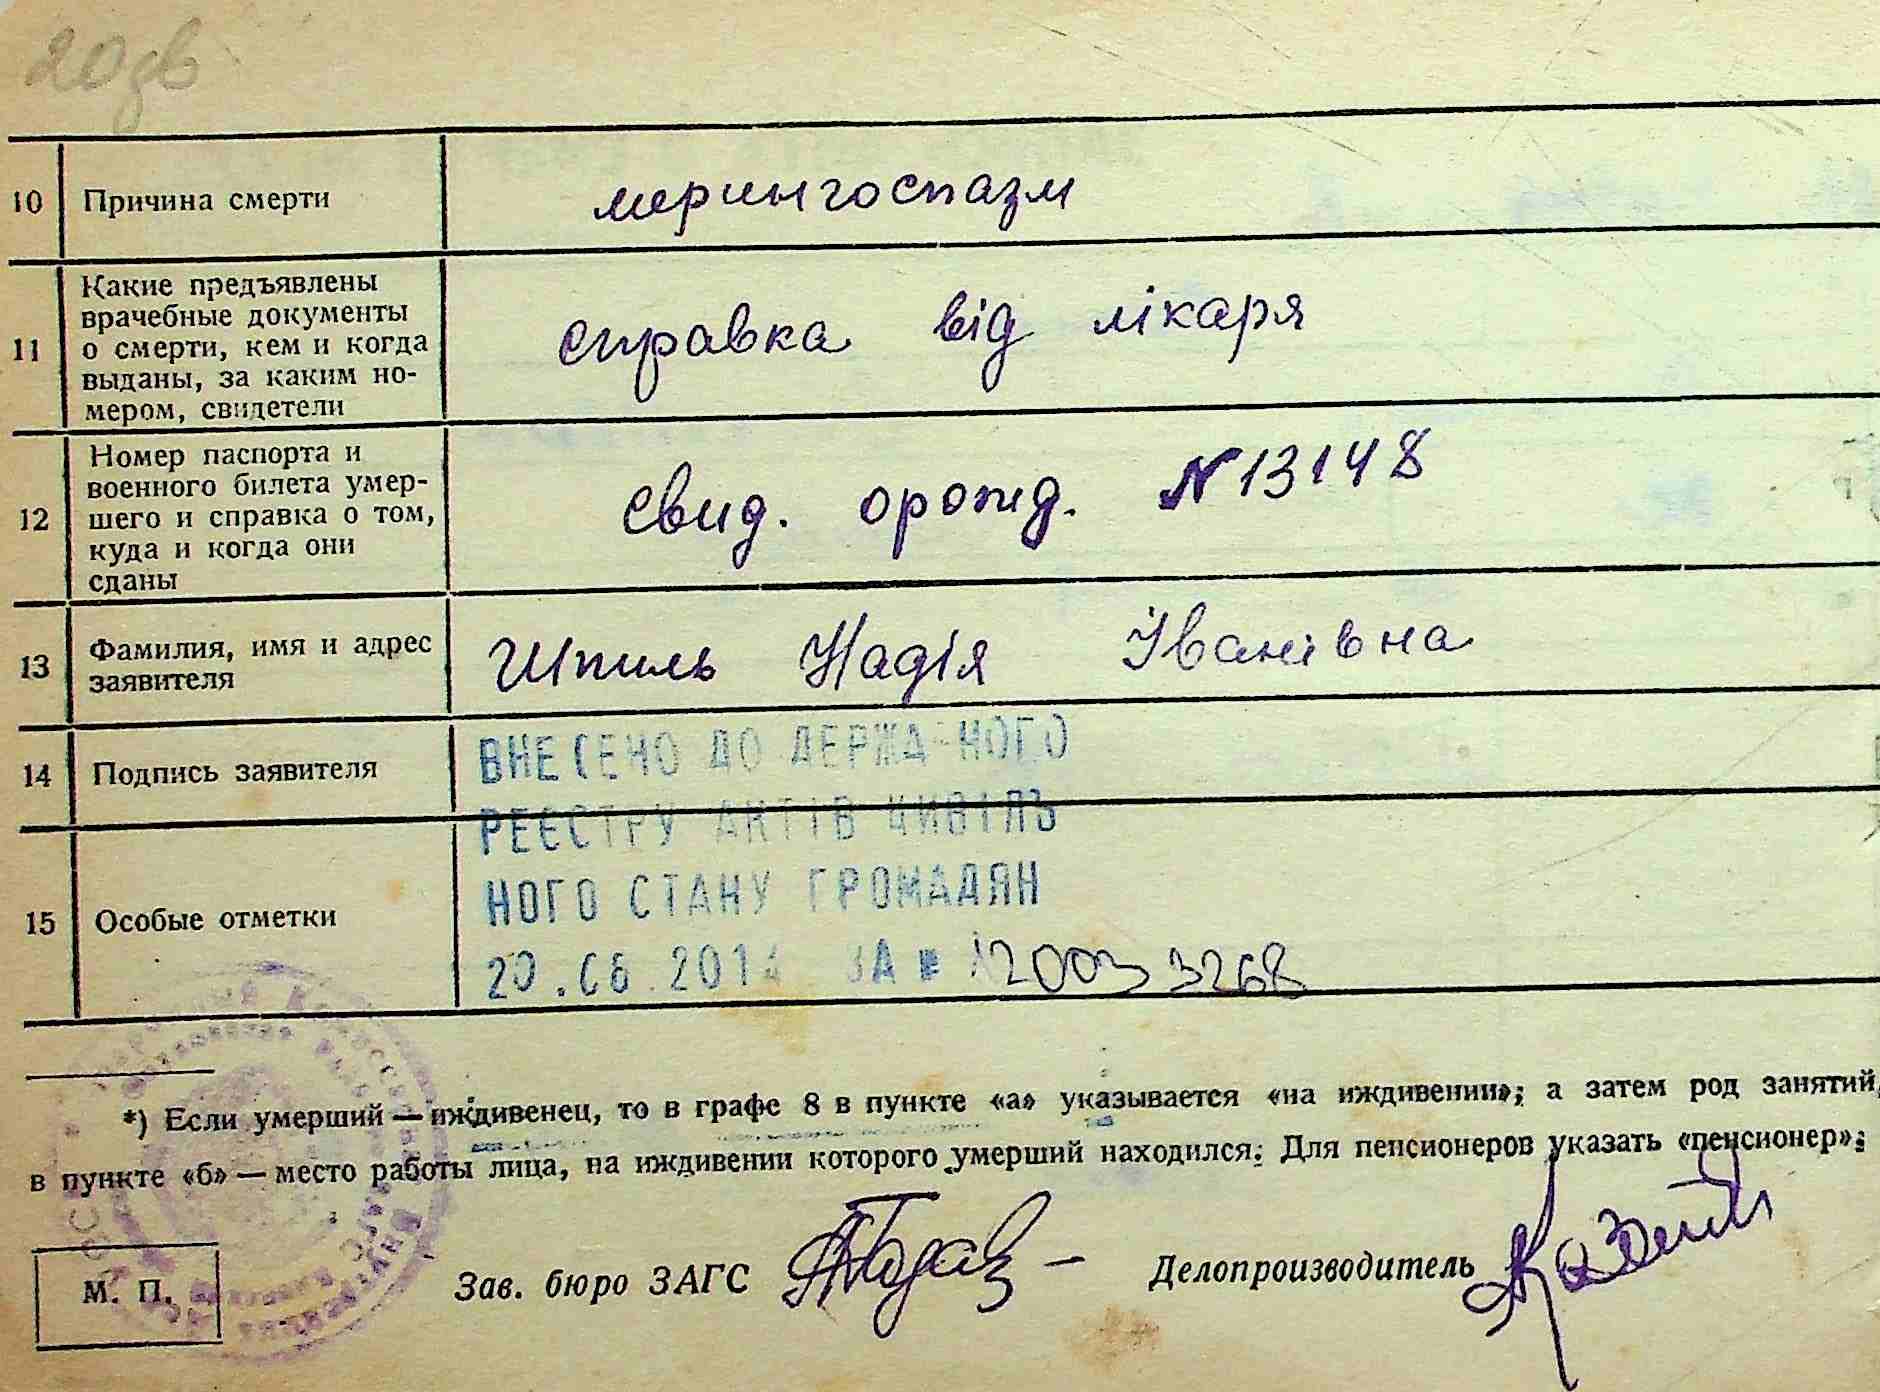 10 Причина смерти мерингоспазм
11 Какие предъявлены
врачебные документы
о смерти, кем и когда
выданы, за каким но-
мером, свидетели
справка від лікаря
12 Номер паспорта и
военного билета умер-
шего и справка о том,
куда и когда они
сданы
свид. орожд. N13148
13 Фамилия, имя и адрес
заявителя
Шпиль Надія Іванівна
14 Подпись заявителя
15 Особые отметки
ВНЕСЕНО ДО ДЕРЖА НОГО
РЕЄСТРУ АКТІВ ЦИВІЛЬ
НОГО СТАНУ ГРОМАДЯН
*) Если умерший — иждивенец, то в графе 8 в пункте «а» указывается «на иждивении»; а затем род занятий,
в пункте «б» — место работы лица, на иждивении которого умерший находился. Для пенсионеров указать «пенсионер»;
М. П. Зав. бюро ЗАГС Делопроизводитель